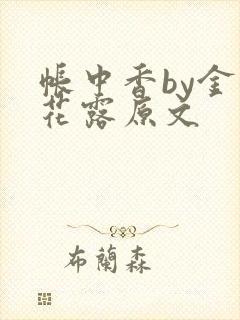 帳中香by金
花露原文
布蘭森